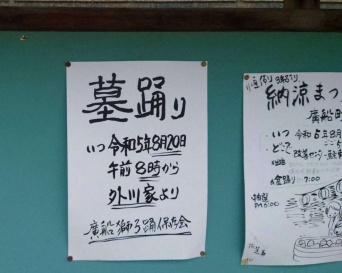 墓踊り
いつ 令和5年8月20日
午前8時から
外川家より
廣船獅子踊保存会
納涼まつ
廣船町
いつ 令和5年8月
どこで
盆踊り 7:00
PM6:00